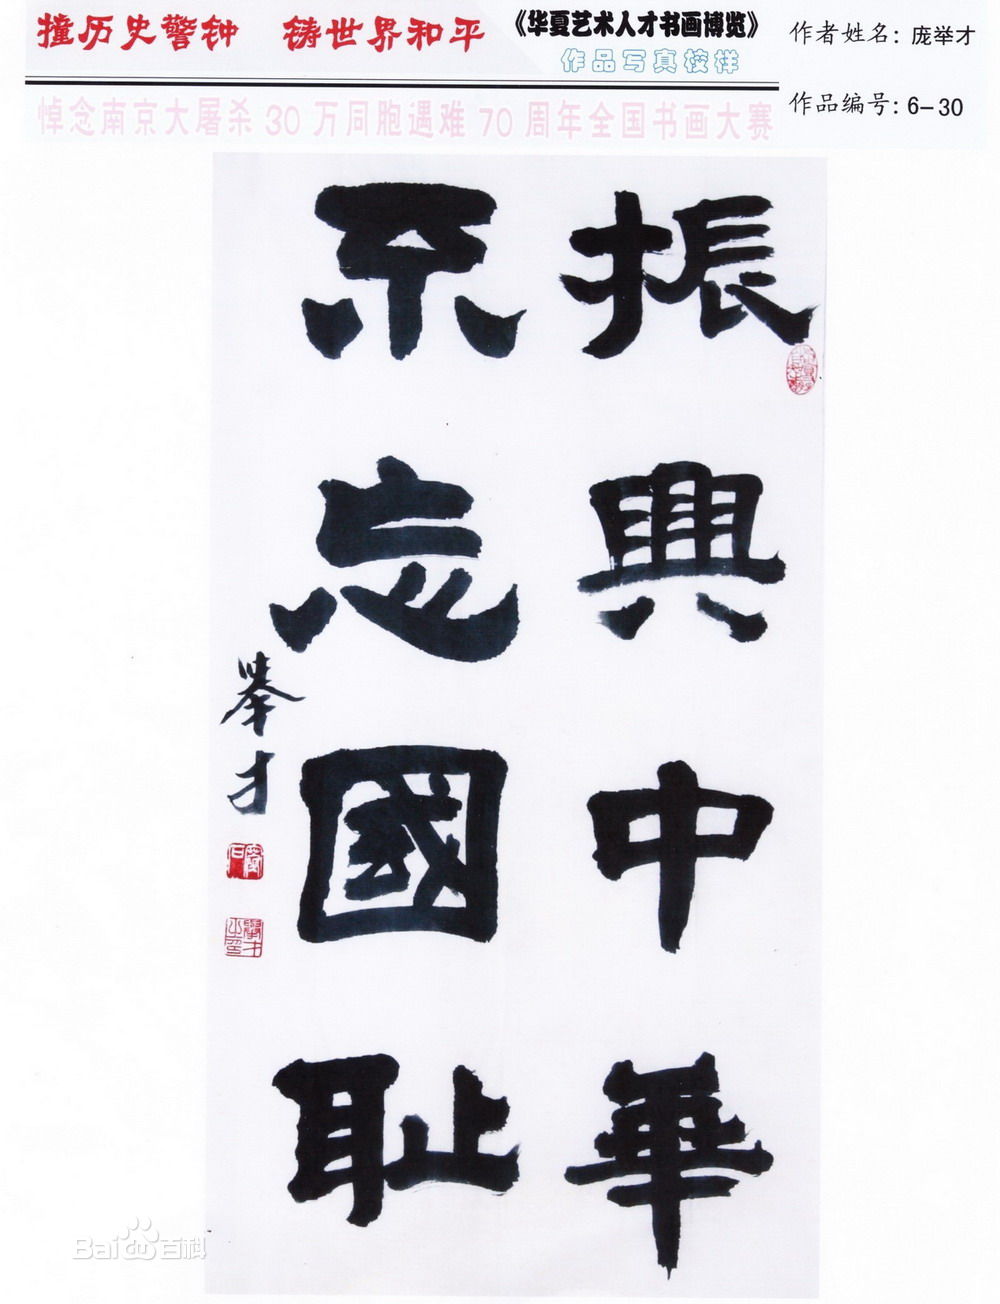 撞历史警钟 铸世界和平
《华夏艺术人才书画博览》
作品写真校样
作者姓名：庞举才
悼念南京大屠杀30万同胞遇难70周年全国书画大赛
作品编号：6-30
振興中華
不忘國耻
舉才
Baidu百科